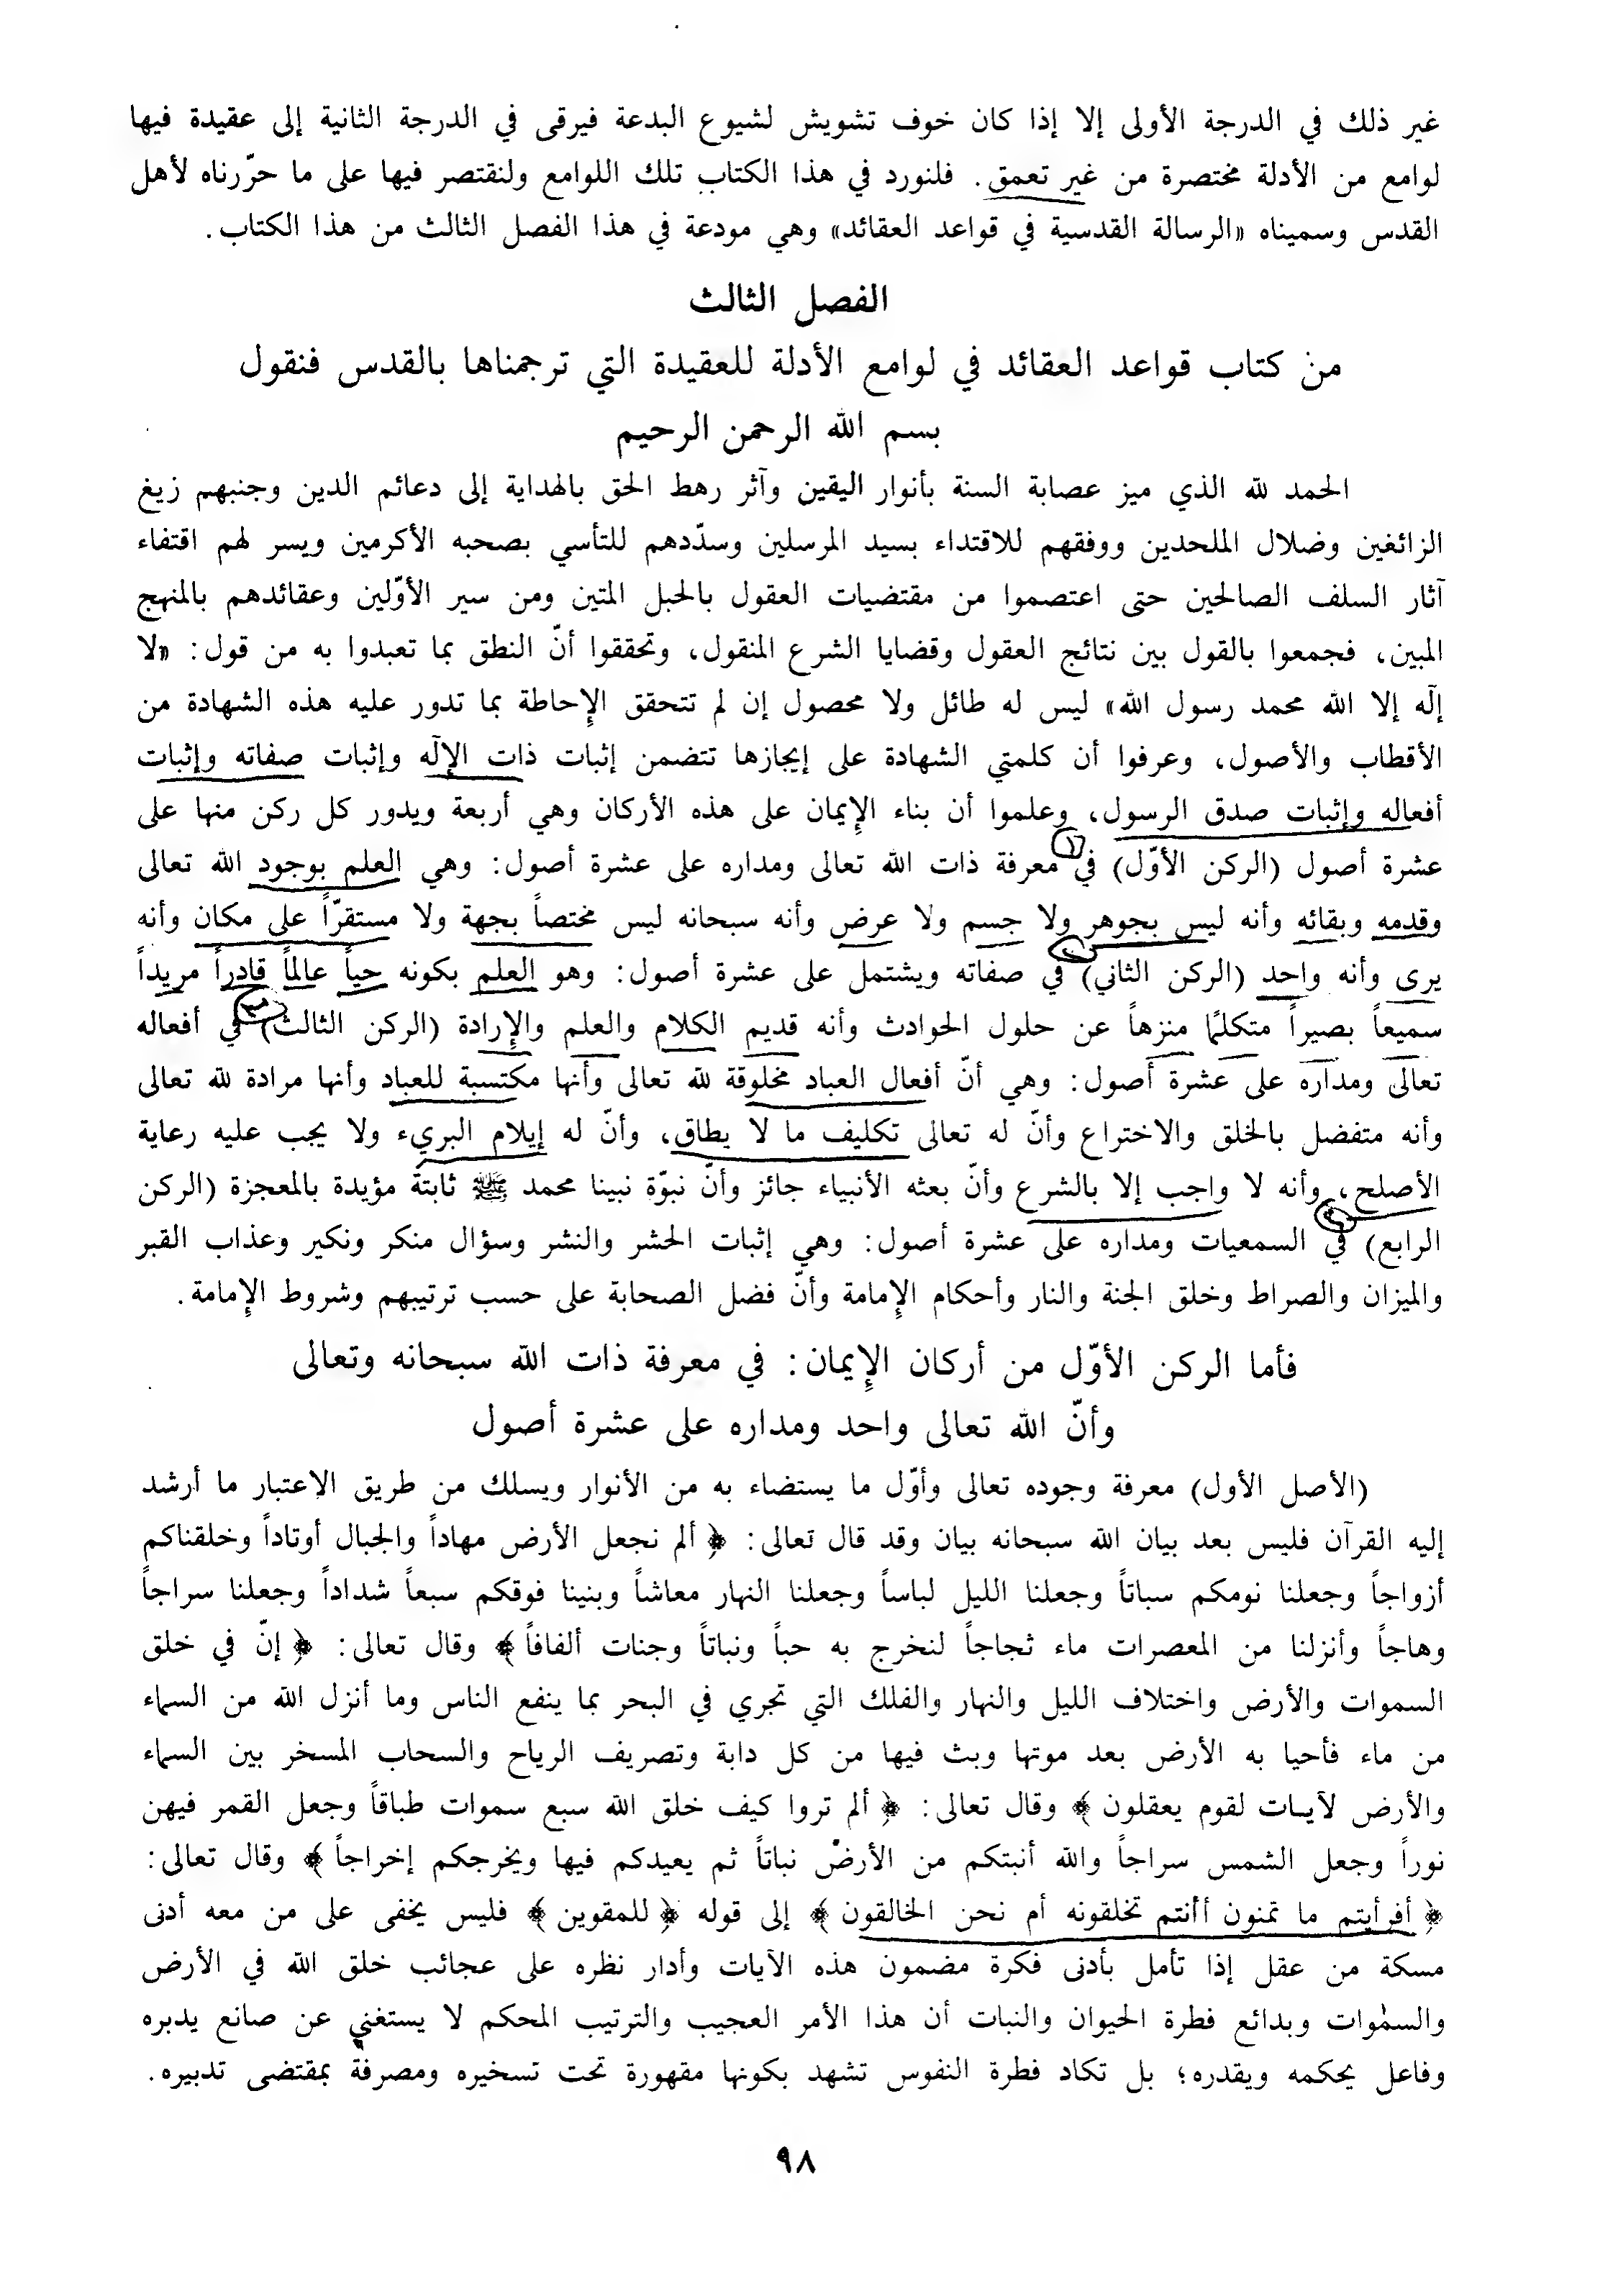 غير ذلك في الدرجة الأولى إلا إذا كان خوف تشويش لشيوع البدعة فيرقى في الدرجة الثانية إلى عقيدة فيها
لوامع من الأدلة مختصرة من غير تعمق. فلنورد في هذا الكتاب تلك اللوامع ولنقتصر فيها على ما حرّرناه لأهل
القدس وسميناه «الرسالة القدسية في قواعد العقائد» وهي مودعة في هذا الفصل الثالث من هذا الكتاب.
الفصل الثالث
من كتاب قواعد العقائد في لوامع الأدلة للعقيدة التي ترجمناها بالقدس فنقول
بسم الله الرحمن الرحيم
الحمد لله الذي ميز عصابة السنة بأنوار اليقين وآثر رهط الحق بالهداية إلى دعائم الدين وجنبهم زيغ
الزائغين وضلال الملحدين ووفقهم للاقتداء بسيد المرسلين وسدّدهم للتأسي بصحبه الأكرمين ويسر لهم اقتفاء
آثار السلف الصالحين حتى اعتصموا من مقتضيات العقول بالحبل المتين ومن سير الأوّلين وعقائدهم بالمنهج
المبين، فجمعوا بالقول بين نتائج العقول وقضايا الشرع المنقول، وتحققوا أنّ النطق بما تعبدوا به من قول: «لا
إلٓه إلا الله محمد رسول الله» ليس له طائل ولا محصول إن لم تتحقق الإحاطة بما تدور عليه هذه الشهادة من
الأقطاب والأصول، وعرفوا أن كلمتي الشهادة على إيجازها تتضمن إثبات ذات الإلٓه وإثبات صفاته وإثبات
أفعاله وإثبات صدق الرسول، وعلموا أن بناء الإيمان على هذه الأركان وهي أربعة ويدور كل ركن منها على
عشرة أصول (الركن الأوّل) في معرفة ذات الله تعالى ومداره على عشرة أصول: وهي العلم بوجود الله تعالى
وقدمه وبقائه وأنه ليس بجوهر ولا جسم ولا عرض وأنه سبحانه ليس مختصاً بجهة ولا مستقرّاً على مكان وأنه
يرى وأنه واحد (الركن الثاني) في صفاته ويشتمل على عشرة أصول: وهو العلم بكونه حياً عالماً قادراً مريداً
سميعاً بصيراً متكلمًا منزهاً عن حلول الحوادث وأنه قديم الكلام والعلم والإرادة (الركن الثالث) في أفعاله
تعالى ومداره على عشرة أصول: وهي أنّ أفعال العباد مخلوقة لله تعالى وأنها مكتسبة للعباد وأنها مرادة لله تعالى
وأنه متفضل بالخلق والاختراع وأنّ له تعالى تكليف ما لا يطاق، وأنّ له إيلام البريء ولا يجب عليه رعاية
الأصلح، وأنه لا واجب إلا بالشرع وأنّ بعثه الأنبياء جائز وأنّ نبوّة نبينا محمد ﷺ ثابتة مؤيدة بالمعجزة (الركن
الرابع) في السمعيات ومداره على عشرة أصول: وهي إثبات الحشر والنشر وسؤال منكر ونكير وعذاب القبر
والميزان والصراط وخلق الجنة والنار وأحكام الإمامة وأنّ فضل الصحابة على حسب ترتيبهم وشروط الإمامة.
فأما الركن الأوّل من أركان الإيمان: في معرفة ذات الله سبحانه وتعالى
وأنّ الله تعالى واحد ومداره على عشرة أصول
(الأصل الأول) معرفة وجوده تعالى وأوّل ما يستضاء به من الأنوار ويسلك من طريق الإعتبار ما أرشد
إليه القرآن فليس بعد بيان الله سبحانه بيان وقد قال تعالى: ﴿ ألم نجعل الأرض مهاداً والجبال أوتاداً وخلقناكم
أزواجاً وجعلنا نومكم سباتاً وجعلنا الليل لباساً وجعلنا النهار معاشاً وبنينا فوقكم سبعاً شداداً وجعلنا سراجاً
وهاجاً وأنزلنا من المعصرات ماء ثجاجاً لنخرج به حباً ونباتاً وجنات ألفافاً ﴾ وقال تعالى: ﴿ إنّ في خلق
السموات والأرض واختلاف الليل والنهار والفلك التي تجري في البحر بما ينفع الناس وما أنزل الله من السماء
من ماء فأحيا به الأرض بعد موتها وبث فيها من كل دابة وتصريف الرياح والسحاب المسخر بين السماء
والأرض لآيات لقوم يعقلون ﴾ وقال تعالى: ﴿ ألم تروا كيف خلق الله سبع سموات طباقاً وجعل القمر فيهن
نوراً وجعل الشمس سراجاً والله أنبتكم من الأرض نباتاً ثم يعيدكم فيها ويخرجكم إخراجاً ﴾ وقال تعالى:
﴿ أفرأيتم ما تمنون أأنتم تخلقونه أم نحن الخالقون ﴾ إلى قوله ﴿ للمقوين ﴾ فليس يخفى على من معه أدنى
مسكة من عقل إذا تأمل بأدنى فكرة مضمون هذه الآيات وأدار نظره على عجائب خلق الله في الأرض
والسمٰوات وبدائع فطرة الحيوان والنبات أن هذا الأمر العجيب والترتيب المحكم لا يستغني عن صانع يدبره
وفاعل يحكمه ويقدره؛ بل تكاد فطرة النفوس تشهد بكونها مقهورة تحت تسخيره ومصرفة بمقتضى تدبيره.
٩٨